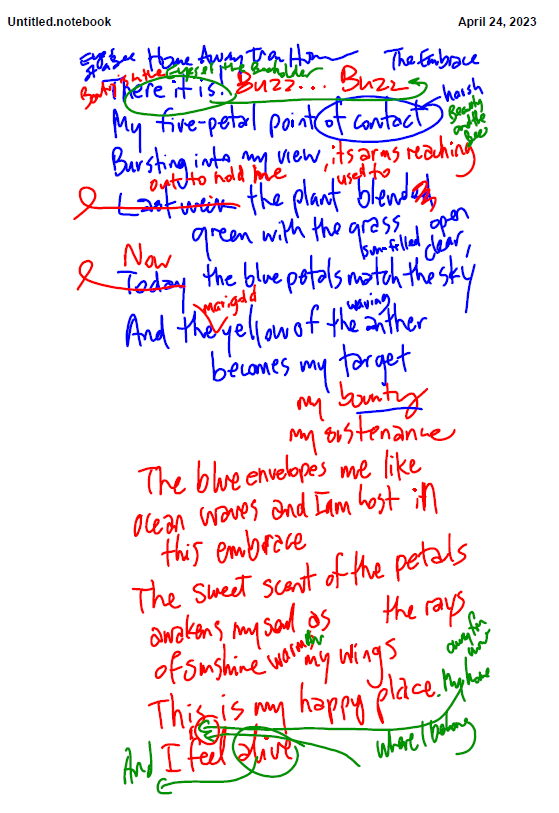 Untiled.notebook April 24, 2023
Home Away from Home The Embrace
Beauty in the Eyes of the Beholder
There it is! Buzz... Buzz
harsh
My five-petal point of contact
Beauty and the Bee
Bursting into my view, its arms reaching
out to hold me used to
Last week the plant blended
green with the grass open
Now sun-filled clear,
Today the blue petals match the sky
marigold waving
And the yellow of the anther
becomes my target
my bounty
my sustenance
The blue envelopes me like
ocean waves and I am lost in
this embrace
The sweet scent of the petals
awakens my soul as the rays
of sunshine warm my wings
away from
This is my happy place. My home
where I belong
And I feel alive